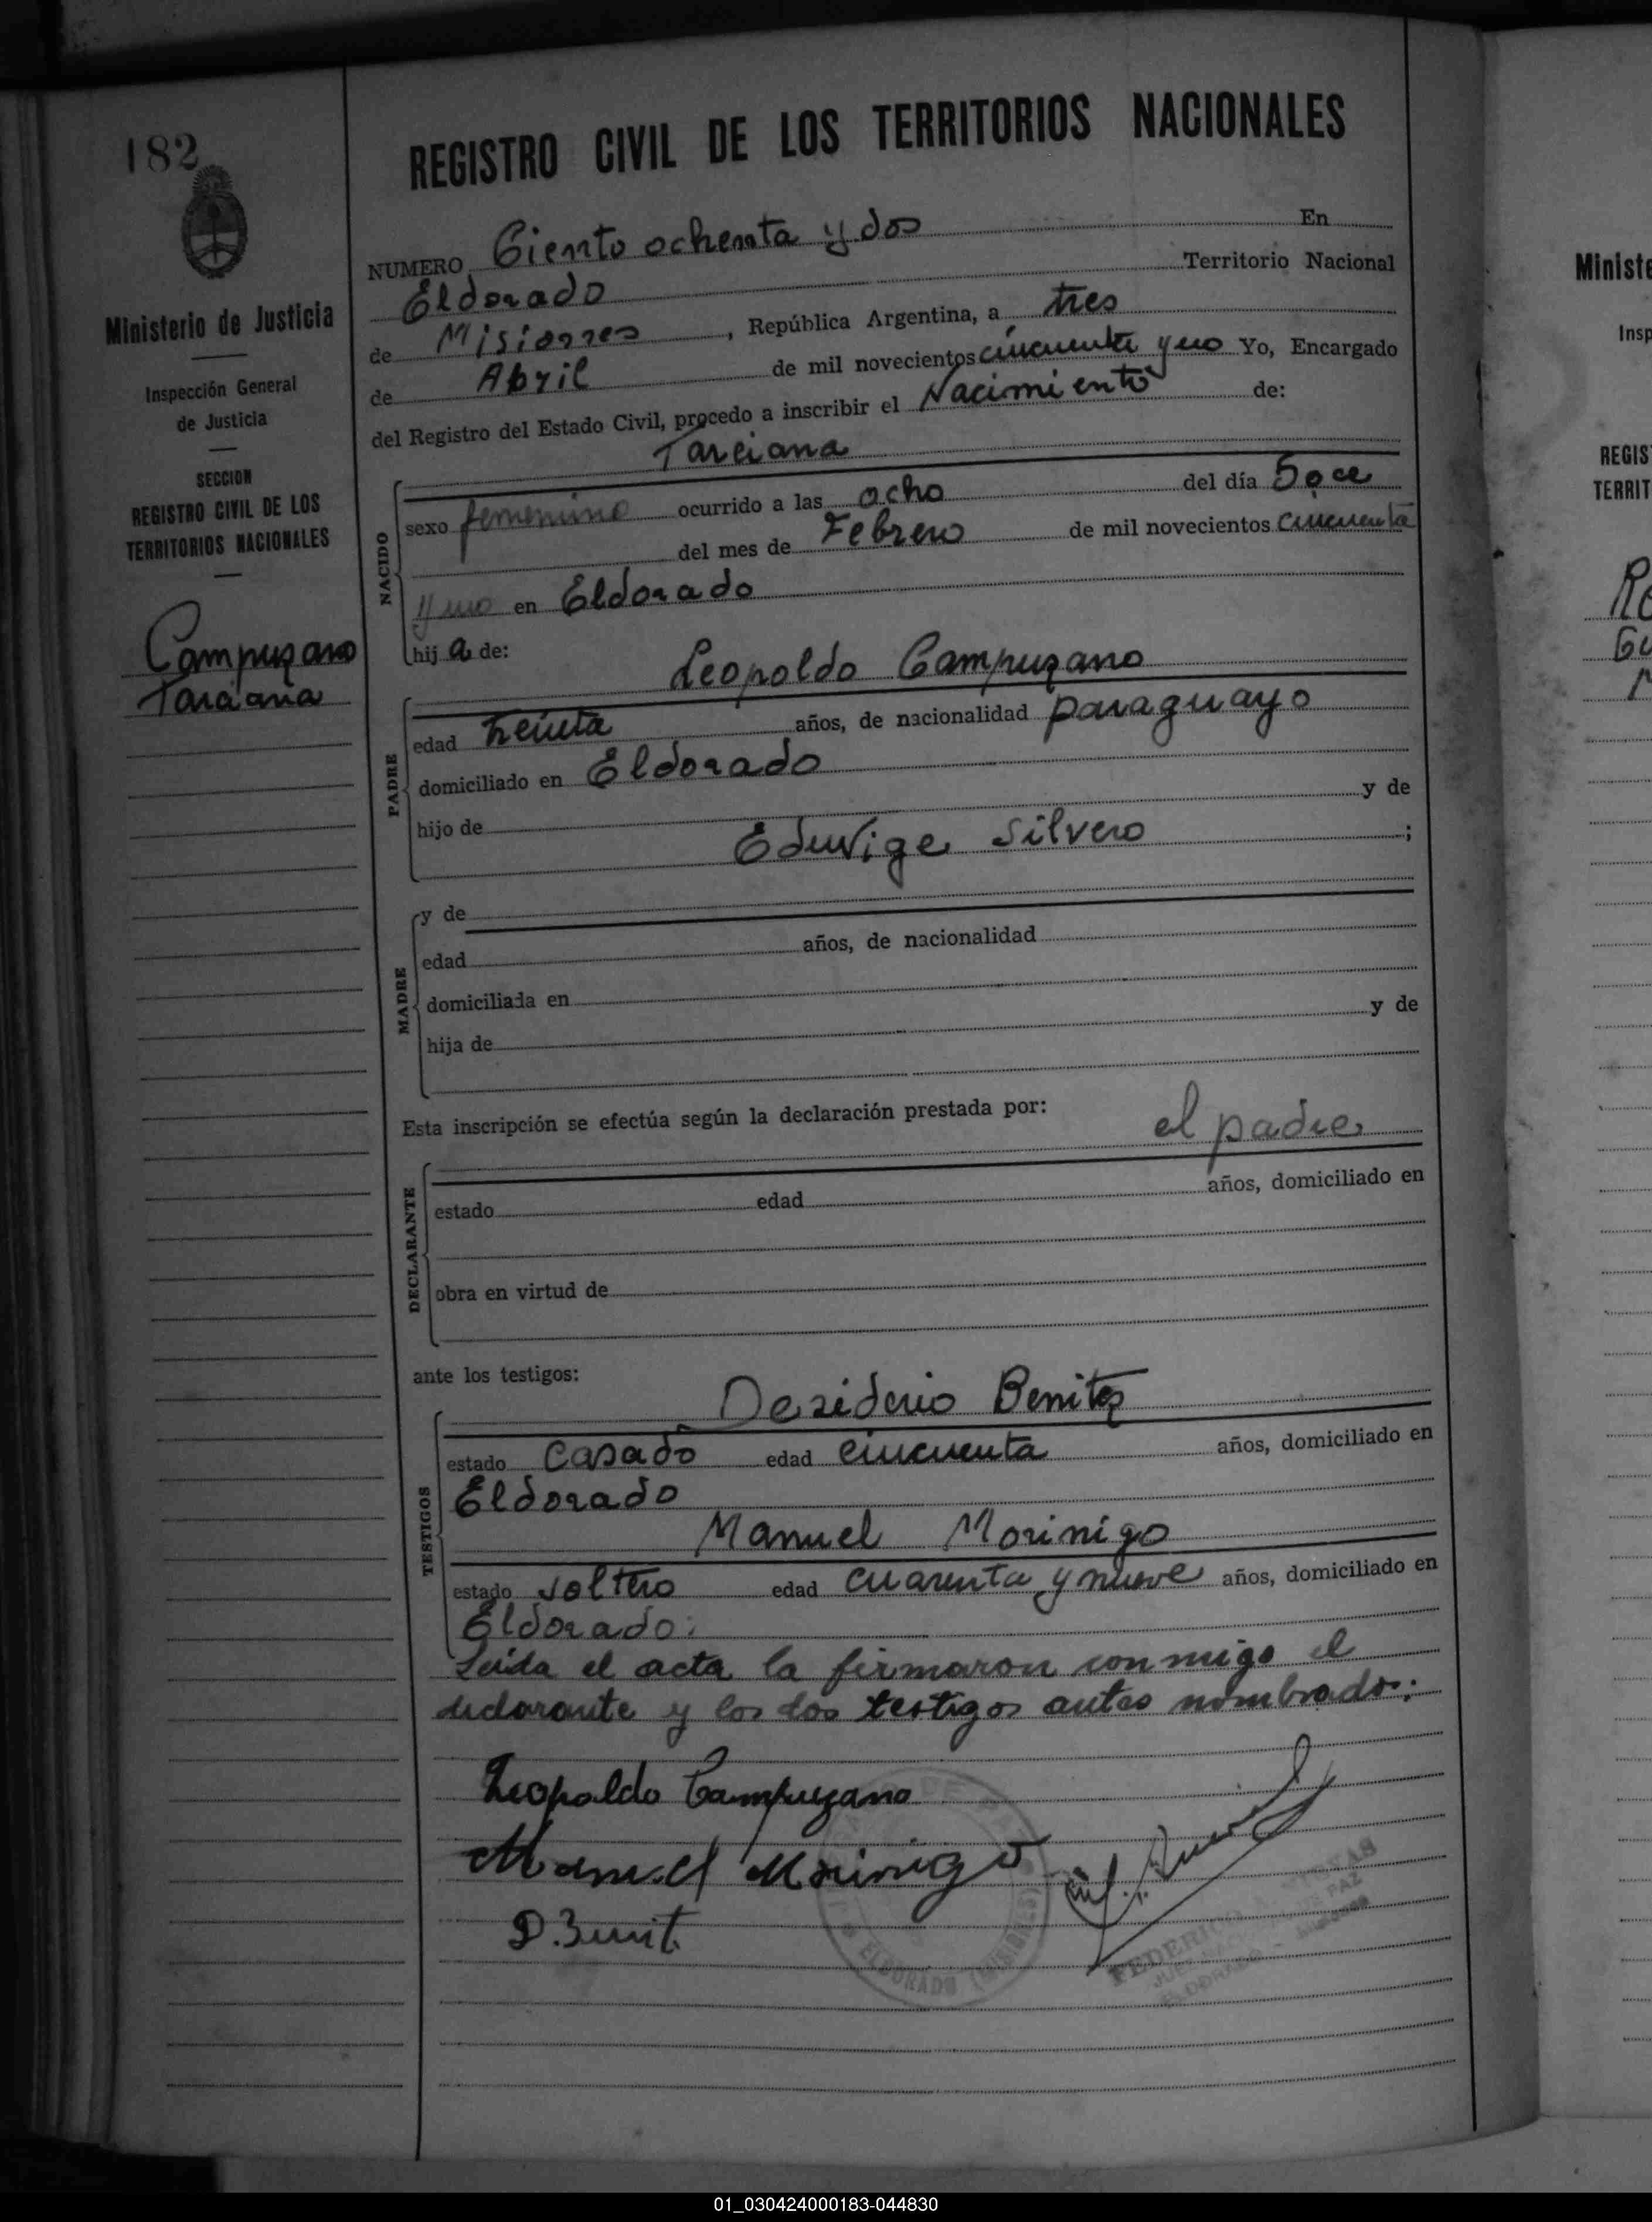 182
Ministerio de Justicia
Inspección General
de Justicia
SECCION
REGISTRO CIVIL DE LOS
TERRITORIOS NACIONALES
Campuzano
Tarciana
REGISTRO CIVIL DE LOS TERRITORIOS NACIONALES
NUMERO Ciento ochenta y dos En
Eldorado Territorio Nacional
de Misiones, República Argentina, a tres
de Abril de mil novecientos cincuenta y uno Yo, Encargado
del Registro del Estado Civil, procedo a inscribir el Nacimiento de:
Tarciana
NACIDO
sexo femenino ocurrido a las ocho del día Doce
del mes de Febrero de mil novecientos cincuenta
y uno en Eldorado
hij a de:
Leopoldo Campuzano
PADRE
edad treinta años, de nacionalidad paraguayo
domiciliado en Eldorado
hijo de y de
Eduvige Silvero ;
MADRE
y de
edad años, de nacionalidad
domiciliada en
hija de y de
Esta inscripción se efectúa según la declaración prestada por:
el padre
DECLARANTE
estado edad años, domiciliado en
obra en virtud de
ante los testigos:
Desiderio Benitez
TESTIGOS
estado casado edad cincuenta años, domiciliado en
Eldorado
Manuel Morinigo
estado soltero edad cuarenta y nueve años, domiciliado en
Eldorado.
Leida el acta la firmaron conmigo el
declarante y los dos testigos antes nombrados:
Leopoldo Campuzano
Manuel Morinigo
D. Benit.
ELDORADO (MISIONES)
JUEZ DE PAZ
ELDORADO - MISIONES
Ministe
Insp
REGIS
TERRIT
01_030424000183-044830